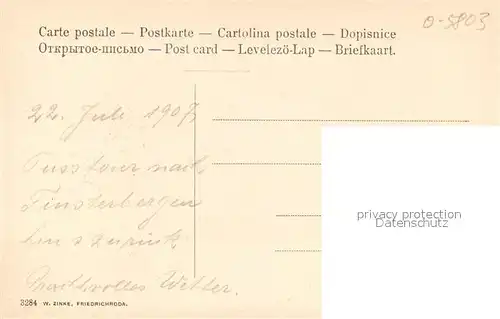 O-5803
Carte postale — Postkarte — Cartolina postale — Dopisnice
Открытое-письмо — Post card — Levelező-Lap — Briefkaart.
22. Juli 1907
Fusstour nach
Finsterbergen
hin & zurück
Prachtvolles Wetter.
privacy protection
oldthing.de
3284 W. ZINKE, FRIEDRICHRODA.